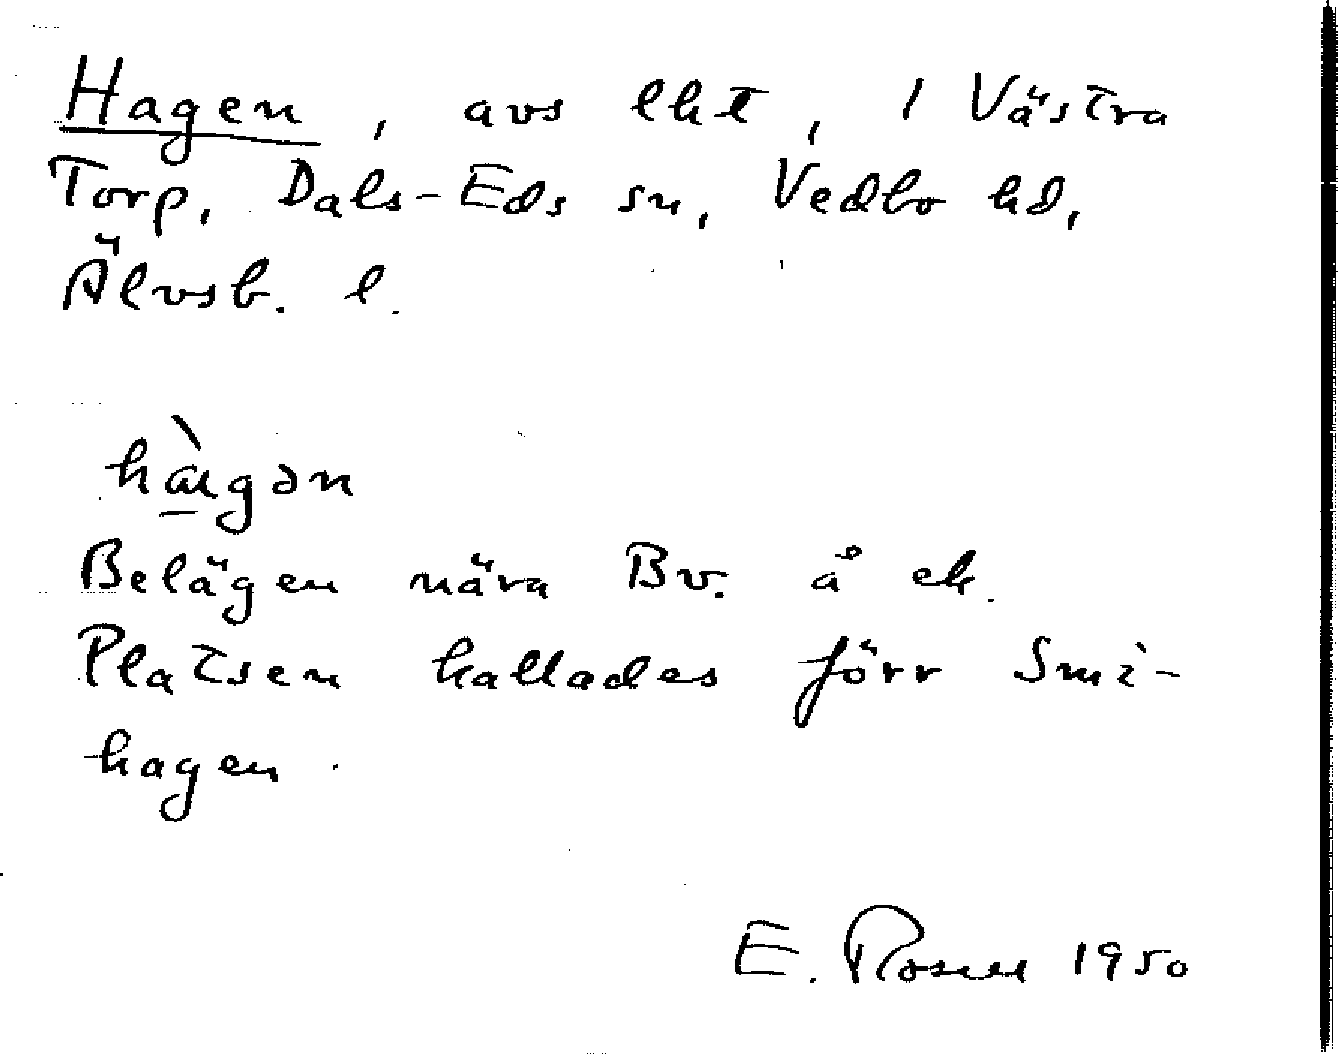 Hagen, avs lht, 1 Västra
Torp, Dals-Eds sn, Vedbo hd,
Älvsb. l.
hàgən
Belägen nära Bv. å ek.
Platsen kallades förr Smi-
hagen.
E. Rosell 1950